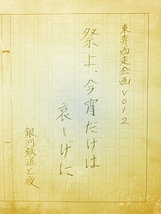 東奔西走企画 VOl2
祭よ、今宵だけは
哀しげに
銀河鉄道と夜